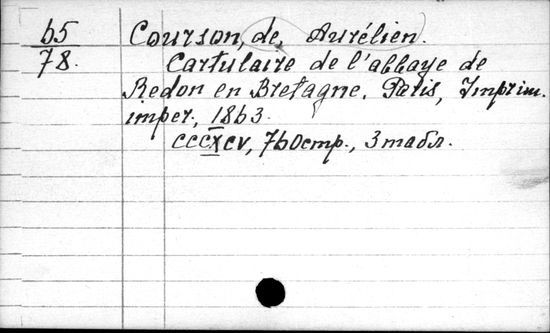 65 Courson, de, Aurélien.
78. Cartulaire de l'abbaye de
Redon en Bretagne. Paris, Imprim.
imper., 1863.
CCCXCV, 760стр., 3табл.